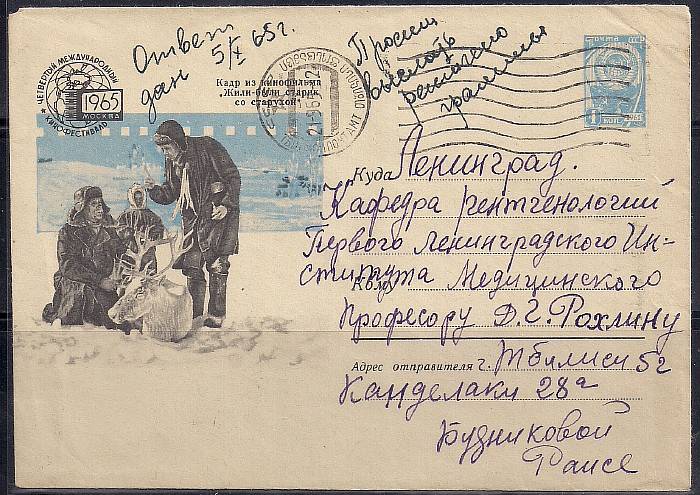 Ответ
дан 5/X 65г.
Просит
выслать
ЧЕТВЕРТЫЙ МЕЖДУНАРОДНЫЙ
1965
МОСКВА
КИНОФЕСТИВАЛЬ
Кадр из кинофильма
„Жили-были старик
со старухой"
ПОЧТА СССР
1 КОП.
1961
Куда Ленинград.
Кафедра рентгенологии
Первого Ленинградского Ин-
ститута Медицинского
Кому
Професору Д.Г. Рохлину
Адрес отправителя г. Тбилиси 52
Канделаки 28а
Будниковой
Раисе